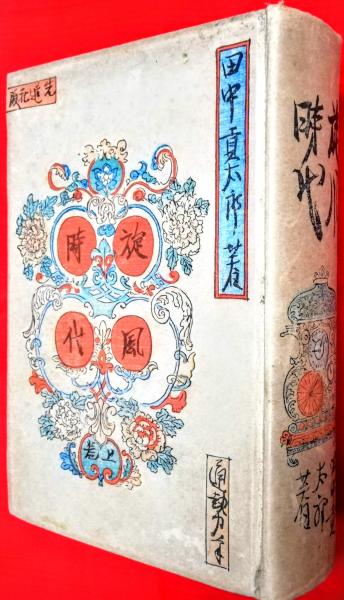 先進社版
田中貢太郎著
旋風
時代
上巻
通勢筆
旋風
時代
太郎
著